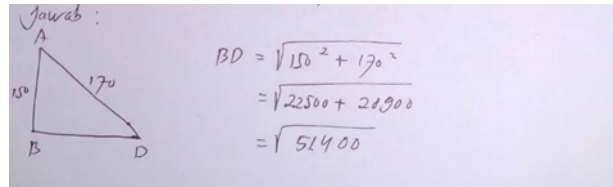 Jawab :
A
150
170
B
D
BD = √150² + 170²
= √22500 + 28900
= √51400